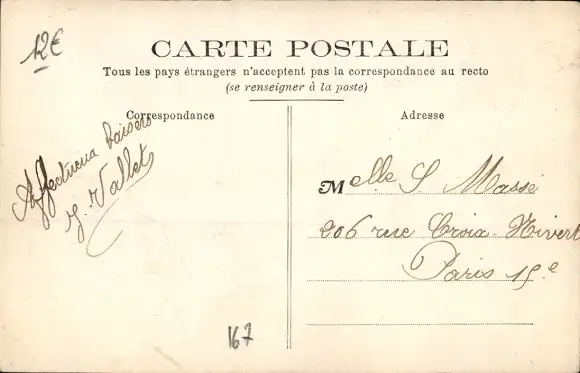 12€
CARTE POSTALE
Tous les pays étrangers n'acceptent pas la correspondance au recto
(se renseigner à la poste)
Correspondance
Affectueux baisers
J. Vallet
Adresse
Melle S. Massé
206 rue Croix-Nivert
Paris 15e
167